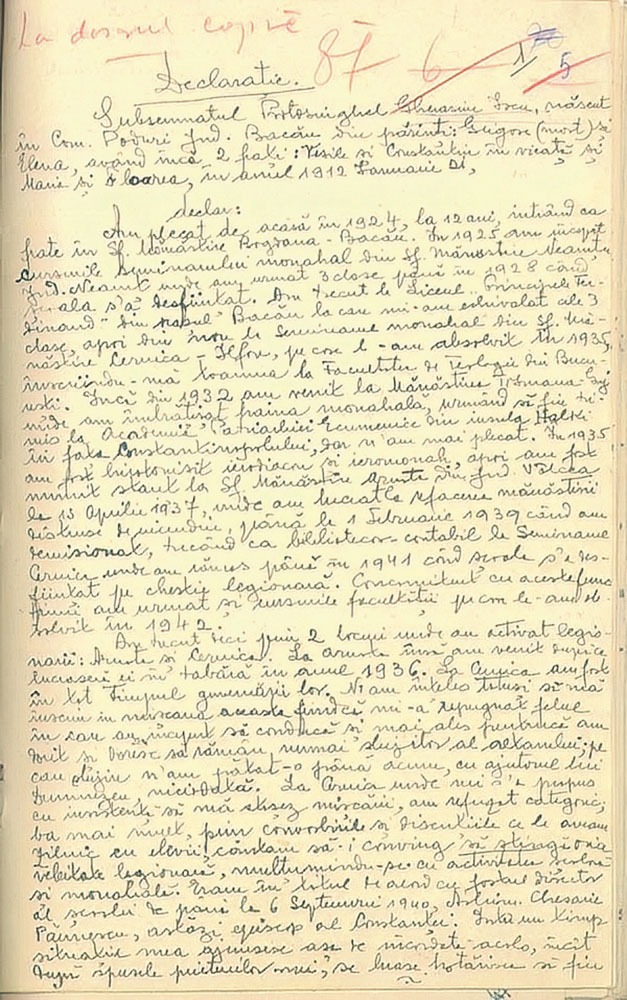 La dosarul copie
87 6 1 5
Declaratie.
Subsemnatul Protosinghel Gherasim Iscu, născut
în Com. Poduri Jud. Bacău din părinți: Grigore (mort) și
Elena, având încă 2 frați: Vasile si Constantin în viață și
Maria și Floarea, în anul 1912 Ianuarie 21,
declar:
Am plecat de acasă în 1924, la 12 ani, intrând ca
frate în Sf. Mănăstire Bogdana-Bacău. In 1925 am început
cursurile Seminarului monahal din Sf. Mănăstire Neamțu
Jud. Neamț unde am urmat 3 clase până în 1928 când
școala s'a desființat. Am trecut la Liceul "Principele Fer-
dinand" din orașul Bacău la care mi-am echivalat cele 3
clase, apoi din nou la Seminarul monahal din Sf. Mă-
năstire Cernica - Ilfov, pe care l-am absolvit în 1935,
înscriindu-mă toamna la Facultatea de Teologie din Bucu-
rești. Încă din 1932 am venit la Mănăstirea Tismana-Gorj
unde am îmbrățișat haina monahală, urmând să fiu tri-
mis la Academia Patriarhiei Ecumenice din insula Halki
în fața Constantinopolului, dar n'am mai plecat. In 1935
am fost hirotonisit ierodiacon și ieromonah, apoi am fost
numit stareț la Sf. Mănăstire Arnota din Jud. Vâlcea
la 15 Aprilie 1937, unde am lucrat la refacerea mănăstirii
distruse de incendiu, până la 1 Februarie 1939 când am
demisionat, trecând ca bibliotecar-contabil la Seminarul
Cernica unde am rămas până în 1941 când școala s'a des-
ființat pe chestie legionară. Concomitent cu aceste func-
țiuni am urmat si cursurile facultății pe care le-am ab-
solvit în 1942.
Am trecut deci prin 2 locuri unde au activat legio-
narii: Arnota si Cernica. La Arnota însă am venit după ce
lucraseră ei în tabără în anul 1936. La Cernica am fost
în tot timpul guvernării lor. N'am înțeles totuși să mă
înscriu în mișcarea aceasta fiindcă mi-a repugnat felul
în care au început să conducă și mai ales pentrucă am
dorit si doresc să rămân numai slujitor al altarului, pe
care slujire n'am pătat-o până acum, cu ajutorul lui
Dumnezeu, niciodată. La Cernica unde mi s'a propus
cu insistență să mă atașez mișcării, am refuzat categoric,
ba mai mult, prin convorbirile și discuțiile ce le aveam
zilnic cu elevii, căutam să-i conving să stingă orice
veleitate legionară, mulțumindu-se cu activitatea școlară
si monahală. Eram în totul de acord cu fostul director
al școalei de până la 6 Septemvrie 1940, Arhim. Chesarie
Păunescu, astăzi episcop al Constanței. Intr'un timp
situația mea ajunsese așa de încordată acolo, încât
după spusele prietenilor mei, se luase hotărârea să fiu